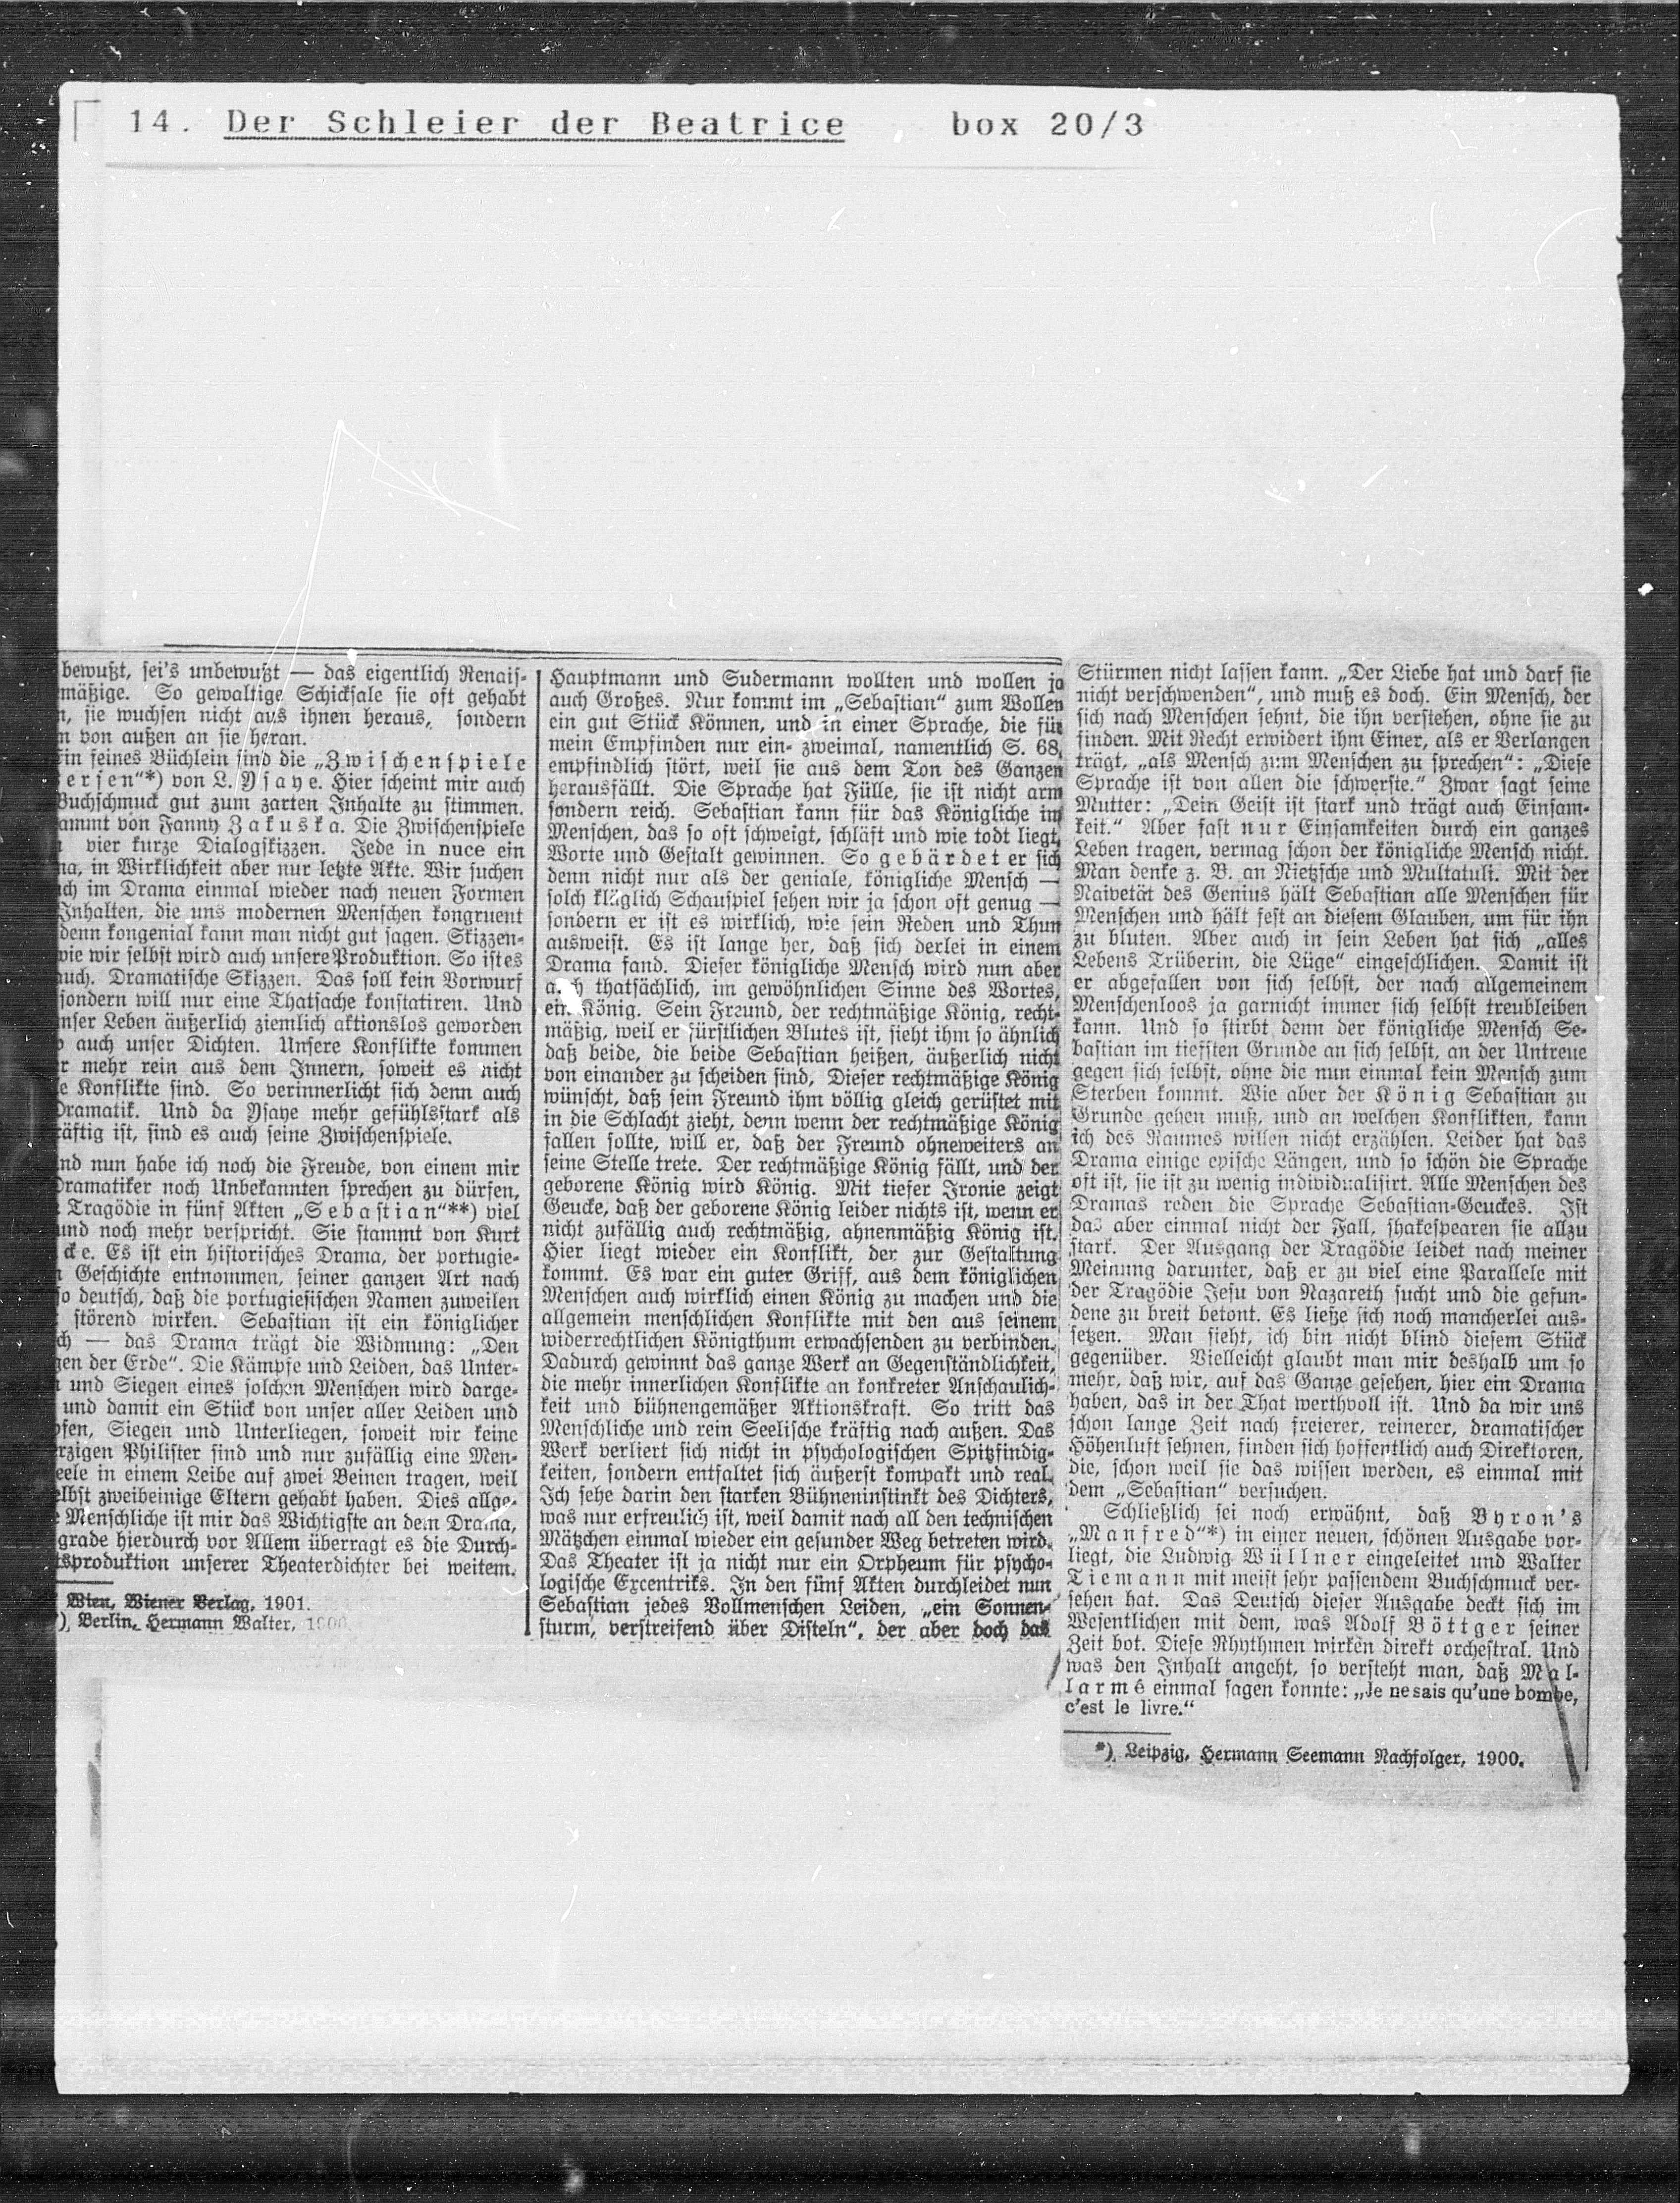 14. Der Schleier der Beatrice box 20/3
bewußt, sei's unbewußt — das eigentlich Renais-
mäßige. So gewaltige Schicksale sie oft gehabt
n, sie wuchsen nicht aus ihnen heraus, sondern
n von außen an sie heran.
Ein feines Büchlein sind die „Zwischenspiele
ersen“*) von L. Ysaye. Hier scheint mir auch
Buchschmuck gut zum zarten Inhalte zu stimmen.
ammt von Fanny Zakuska. Die Zwischenspiele
vier kurze Dialogskizzen. Jede in nuce ein
na, in Wirklichkeit aber nur letzte Akte. Wir suchen
ch im Drama einmal wieder nach neuen Formen
Inhalten, die uns modernen Menschen kongruent
denn kongenial kann man nicht gut sagen. Skizzen-
wie wir selbst wird auch unsere Produktion. So ist es
auch. Dramatische Skizzen. Das soll kein Vorwurf
sondern will nur eine Thatsache konstatiren. Und
nser Leben äußerlich ziemlich aktionslos geworden
auch unser Dichten. Unsere Konflikte kommen
r mehr rein aus dem Innern, soweit es nicht
e Konflikte sind. So verinnerlicht sich denn auch
Dramatik. Und da Ysaye mehr gefühlsstark als
räftig ist, sind es auch seine Zwischenspiele.
nd nun habe ich noch die Freude, von einem mir
Dramatiker noch Unbekannten sprechen zu dürfen,
Tragödie in fünf Akten „Sebastian“**) viel
und noch mehr verspricht. Sie stammt von Kurt
cke. Es ist ein historisches Drama, der portugie-
n Geschichte entnommen, seiner ganzen Art nach
so deutsch, daß die portugiesischen Namen zuweilen
störend wirken. Sebastian ist ein königlicher
ch — das Drama trägt die Widmung: „Den
gen der Erde“. Die Kämpfe und Leiden, das Unter-
n und Siegen eines solchen Menschen wird darge-
und damit ein Stück von unser aller Leiden und
pfen, Siegen und Unterliegen, soweit wir keine
rzigen Philister sind und nur zufällig eine Men-
eele in einem Leibe auf zwei Beinen tragen, weil
elbst zweibeinige Eltern gehabt haben. Dies allge-
e Menschliche ist mir das Wichtigste an dem Drama,
grade hierdurch vor Allem überragt es die Durch-
tsproduktion unserer Theaterdichter bei weitem.
Wien, Wiener Verlag, 1901.
*) Berlin, Hermann Walter, 1900.
Hauptmann und Sudermann wollten und wollen ja
auch Großes. Nur kommt im „Sebastian“ zum Wollen
ein gut Stück Können, und in einer Sprache, die für
mein Empfinden nur ein- zweimal, namentlich S. 68,
empfindlich stört, weil sie aus dem Ton des Ganzen
herausfällt. Die Sprache hat Fülle, sie ist nicht arm
sondern reich. Sebastian kann für das Königliche im
Menschen, das so oft schweigt, schläft und wie todt liegt,
Worte und Gestalt gewinnen. So gebärdet er sich
denn nicht nur als der geniale, königliche Mensch —
solch kläglich Schauspiel sehen wir ja schon oft genug —
sondern er ist es wirklich, wie sein Reden und Thun
ausweist. Es ist lange her, daß sich derlei in einem
Drama fand. Dieser königliche Mensch wird nun aber
a ch thatsächlich, im gewöhnlichen Sinne des Wortes,
ein König. Sein Freund, der rechtmäßige König, recht-
mäßig, weil er fürstlichen Blutes ist, sieht ihm so ähnlich
daß beide, die beide Sebastian heißen, äußerlich nicht
von einander zu scheiden sind, Dieser rechtmäßige König
wünscht, daß sein Freund ihm völlig gleich gerüstet mit
in die Schlacht zieht, denn wenn der rechtmäßige König
fallen sollte, will er, daß der Freund ohneweiters an
seine Stelle trete. Der rechtmäßige König fällt, und der
geborene König wird König. Mit tiefer Ironie zeigt
Geucke, daß der geborene König leider nichts ist, wenn er
nicht zufällig auch rechtmäßig, ahnenmäßig König ist.
Hier liegt wieder ein Konflikt, der zur Gestaltung
kommt. Es war ein guter Griff, aus dem königlichen
Menschen auch wirklich einen König zu machen und die
allgemein menschlichen Konflikte mit den aus seinem
widerrechtlichen Königthum erwachsenden zu verbinden.
Dadurch gewinnt das ganze Werk an Gegenständlichkeit,
die mehr innerlichen Konflikte an konkreter Anschaulich-
keit und bühnengemäßer Aktionskraft. So tritt das
Menschliche und rein Seelische kräftig nach außen. Das
Werk verliert sich nicht in psychologischen Spitzfindig-
keiten, sondern entfaltet sich äußerst kompakt und real.
Ich sehe darin den starken Bühneninstinkt des Dichters,
was nur erfreulich ist, weil damit nach all den technischen
Mätzchen einmal wieder ein gesunder Weg betreten wird.
Das Theater ist ja nicht nur ein Orpheum für psycho-
logische Excentriks. In den fünf Akten durchleidet nun
Sebastian jedes Vollmenschen Leiden, „ein Sonnen-
sturm, verstreifend über Disteln“, der aber doch das
Stürmen nicht lassen kann. „Der Liebe hat und darf sie
nicht verschwenden“, und muß es doch. Ein Mensch, der
sich nach Menschen sehnt, die ihn verstehen, ohne sie zu
finden. Mit Recht erwidert ihm Einer, als er Verlangen
trägt, „als Mensch zum Menschen zu sprechen“: „Diese
Sprache ist von allen die schwerste.“ Zwar sagt seine
Mutter: „Dein Geist ist stark und trägt auch Einsam-
keit.“ Aber fast nur Einsamkeiten durch ein ganzes
Leben tragen, vermag schon der königliche Mensch nicht.
Man denke z. B. an Nietzsche und Multatuli. Mit der
Naivetät des Genius hält Sebastian alle Menschen für
Menschen und hält fest an diesem Glauben, um für ihn
zu bluten. Aber auch in sein Leben hat sich „alles
Lebens Trüberin, die Lüge“ eingeschlichen. Damit ist
er abgefallen von sich selbst, der nach allgemeinem
Menschenloos ja garnicht immer sich selbst treubleiben
kann. Und so stirbt denn der königliche Mensch Se-
bastian im tiefsten Grunde an sich selbst, an der Untreue
gegen sich selbst, ohne die nun einmal kein Mensch zum
Sterben kommt. Wie aber der König Sebastian zu
Grunde gehen muß, und an welchen Konflikten, kann
ich des Raumes willen nicht erzählen. Leider hat das
Drama einige epische Längen, und so schön die Sprache
oft ist, sie ist zu wenig individualisirt. Alle Menschen des
Dramas reden die Sprache Sebastian-Geuckes. Ist
das aber einmal nicht der Fall, shakespearen sie allzu
stark. Der Ausgang der Tragödie leidet nach meiner
Meinung darunter, daß er zu viel eine Parallele mit
der Tragödie Jesu von Nazareth sucht und die gefun-
dene zu breit betont. Es ließe sich noch mancherlei aus-
setzen. Man sieht, ich bin nicht blind diesem Stück
gegenüber. Vielleicht glaubt man mir deshalb um so
mehr, daß wir, auf das Ganze gesehen, hier ein Drama
haben, das in der That werthvoll ist. Und da wir uns
schon lange Zeit nach freierer, reinerer, dramatischer
Höhenluft sehnen, finden sich hoffentlich auch Direktoren,
die, schon weil sie das wissen werden, es einmal mit
dem „Sebastian“ versuchen.
Schließlich sei noch erwähnt, daß Byron's
„Manfred“*) in einer neuen, schönen Ausgabe vor-
liegt, die Ludwig Wüllner eingeleitet und Walter
Tiemann mit meist sehr passendem Buchschmuck ver-
sehen hat. Das Deutsch dieser Ausgabe deckt sich im
Wesentlichen mit dem, was Adolf Böttger seiner
Zeit bot. Diese Rhythmen wirken direkt orchestral. Und
was den Inhalt angeht, so versteht man, daß Mal-
larmé einmal sagen konnte: „Je ne sais qu'une bombe,
c'est le livre.“
*) Leipzig, Hermann Seemann Nachfolger, 1900.